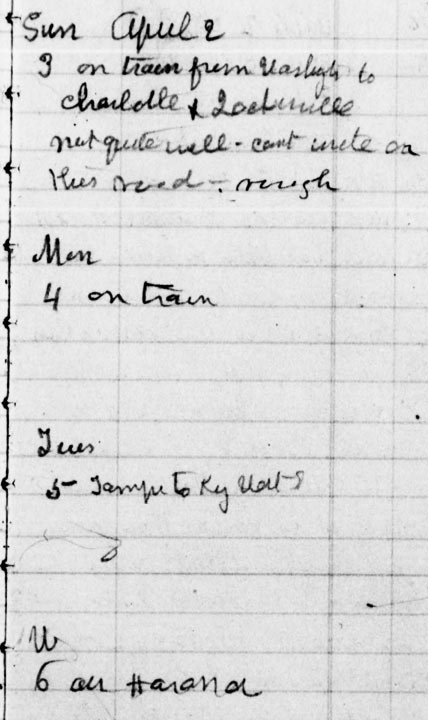 Sun April 2
3 on train from Washgh to
Charlotte & Jacksville
not quite well - cant write on
this road - rough
Mon
4 on train
Tues
5 - Tampa to Key West
W
6 arr Havana